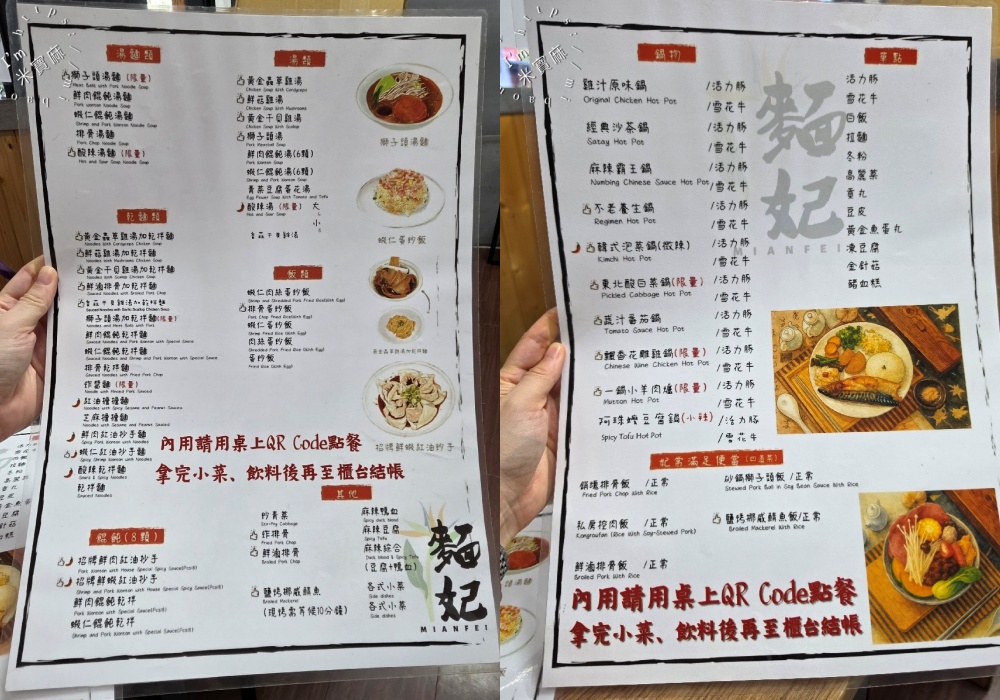 湯麵類
獅子頭湯麵(限量)
Meat Balls with Pork Noodle Soup
鮮肉餛飩湯麵
Pork Wonton Noodle Soup
蝦仁餛飩湯麵
Shrimp and Pork Wonton Noodle Soup
排骨湯麵
Pork Chop Noodle Soup
酸辣湯麵(限量)
Hot and Sour Soup Noodle Soup
乾麵類
黃金蟲草雞湯加乾拌麵
Noodles with Cordyceps Chicken Soup
鮮菇雞湯加乾拌麵
Noodles with Mushrooms Chicken Soup
黃金干貝雞湯加乾拌麵
Noodles with Scallop Chicken Soup
鮮滷排骨加乾拌麵
Sauced Noodles with Broiled Pork Chop
獅子頭湯加乾拌麵(限量)
Noodles and Meat Balls with Pork
鮮肉餛飩乾拌麵
Sauced Noodles and Pork Wonton with Special Sauce
蝦仁餛飩乾拌麵
Sauced Noodles and Shrimp and Pork Wonton with Special Sauce
排骨乾拌麵
Sauced Noodles with Fried Pork Chop
炸醬麵(限量)
Noodle with Minced Pork Sauced
紅油擔擔麵
Noodles with Spicy Sesame and Peanut Sauces
芝麻擔擔麵
Noodles with Sesame and Peanut Sauced
鮮肉紅油抄手麵
Spicy Pork Wonton Noodles
蝦仁紅油抄手麵
酸辣乾拌麵
Sour & Spicy Noodles
乾拌麵
Sauced Noodles
餛飩(8顆)
招牌鮮肉紅油抄手
Pork Wonton with House Special Spicy Sauce(Pcs8)
招牌鮮蝦紅油抄手
Shrimp and Pork Wonton with House Special Spicy Sauce(Pcs8)
鮮肉餛飩乾拌
Pork Wonton with Special Sauce(Pcs8)
蝦仁餛飩乾拌
Shrimp and Pork Wonton with Special Sauce(Pcs8)
湯類
黃金蟲草雞湯
Chicken Soup With Cordyceps
鮮菇雞湯
Chicken Soup With Mushrooms
黃金干貝雞湯
Chicken Soup With Scallop
獅子頭湯
Pork Meatball Soup
鮮肉餛飩湯(6顆)
Pork Wonton Soup
蝦仁餛飩湯(6顆)
Shrimp and Pork Wonton Soup
青菜豆腐蛋花湯
Egg Flower Soup With Tomato and Tofu
酸辣湯(限量)
Hot and Sour Soup
大
小
飯類
蝦仁肉絲蛋炒飯
Shrimp and Shredded Pork Fried Rice(With Egg)
排骨蛋炒飯
Pork Chop Fried Rice(With Egg)
蝦仁蛋炒飯
Shrimp Fried Rice (With Egg)
肉絲蛋炒飯
Shredded Pork Fried Rice (With Egg)
蛋炒飯
Fried Rice (With Egg)
獅子頭湯麵
蝦仁蛋炒飯
黃金蟲草雞湯加乾拌麵
招牌鮮蝦紅油抄手
內用請用桌上QR Code點餐
拿完小菜、飲料後再至櫃台結帳
其他
炒青菜
Stir-fry Cabbage
炸排骨
Fried Pork Chop
鮮滷排骨
Broiled Pork Chop
鹽烤挪威鯖魚
Broiled Mackerel
(現烤需等候10分鐘)
麻辣鴨血
Spicy duck blood
麻辣豆腐
Spicy Tofu
麻辣綜合
Duck blood & Spicy Tofu
(豆腐+鴨血)
各式小菜
Side dishes
各式小菜
Side dishes
麵妃
MIANFEI
鍋物
雞汁原味鍋
Original Chicken Hot Pot
/活力豚
/雪花牛
經典沙茶鍋
Satay Hot Pot
/活力豚
/雪花牛
麻辣霸王鍋
Numbing Chinese Sauce Hot Pot
/活力豚
/雪花牛
不老養生鍋
Regimen Hot Pot
/活力豚
/雪花牛
韓式泡菜鍋(微辣)
Kimchi Hot Pot
/活力豚
/雪花牛
東北酸白菜鍋(限量)
Pickled Cabbage Hot Pot
/活力豚
/雪花牛
蔬汁番茄鍋
Tomato Sauce Hot Pot
/活力豚
/雪花牛
飄香花雕雞鍋(限量)
Chinese Wine Chicken Hot Pot
/活力豚
/雪花牛
一鍋小羊肉爐(限量)
Mutton Hot Pot
/活力豚
/雪花牛
阿珠嬤豆腐鍋(小辣)
Spicy Tofu Hot Pot
/活力豚
/雪花牛
麵妃
MIANFEI
單點
活力豚
雪花牛
白飯
拉麵
冬粉
高麗菜
貢丸
豆皮
黃金魚蛋丸
凍豆腐
金針菇
豬血糕
Fried Pork Chop With Rice
/正常
砂鍋獅子頭飯 /正常
Stewed Pork Ball in Soy Bean Sauce With Rice
私房控肉飯 /正常
Kongroufan (Rice With Soy-Stewed Pork)
鹽烤挪威鯖魚飯/正常
Broiled Mackerel With Rice
鮮滷排骨飯 /正常
Broiled Pork With Rice
內用請用桌上QR Code點餐
拿完小菜、飲料後再至櫃台結帳